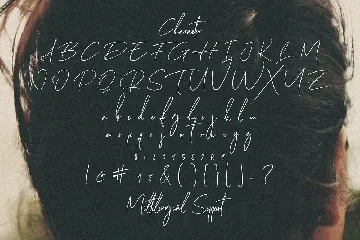 Character
A B C D E F G H I J K L M
N O P Q R S T U V W X Y Z
a b c d e f g h i j k l m
n o p q r s t u v w x y z
0 1 2 3 4 5 6 7 8 9
Multilingual Support